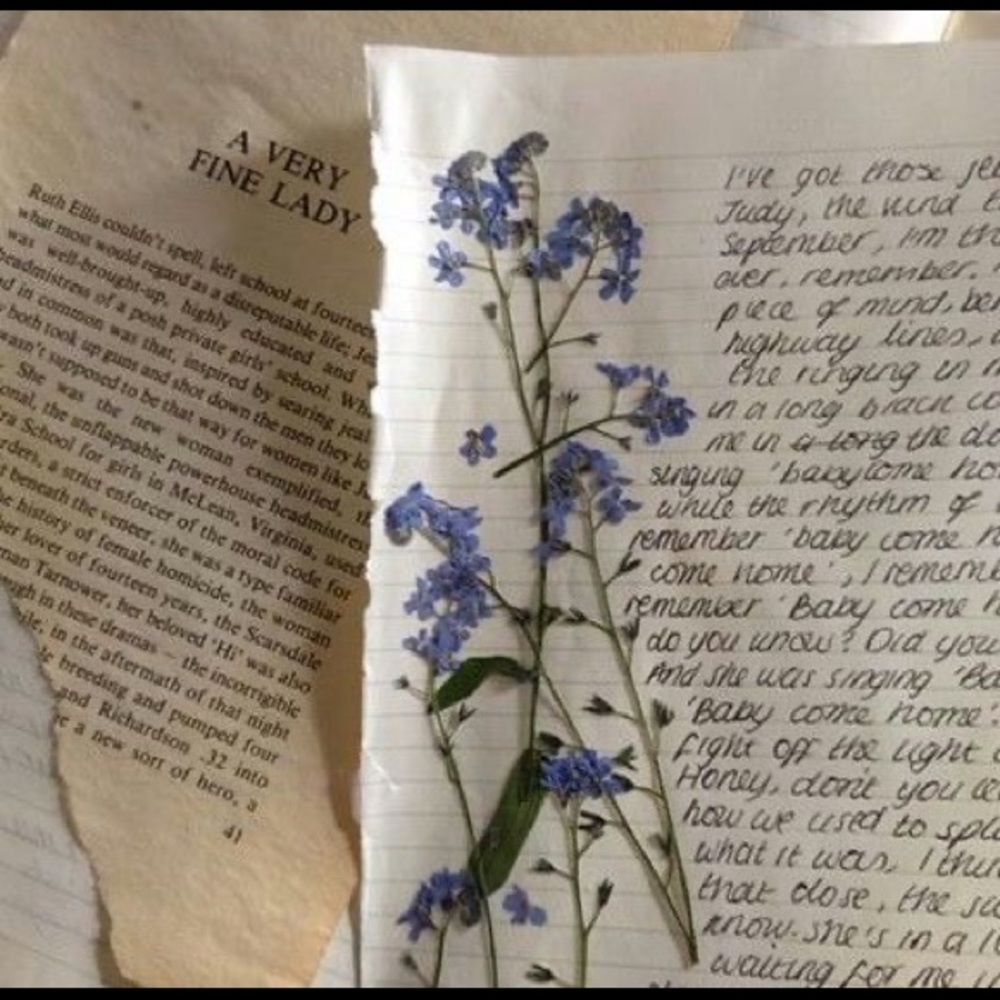 A VERY
FINE LADY
Ruth Ellis couldn't spell, left school at fourteen
what most would regard as a disreputable life; Je
was well-brought-up, highly educated and
headmistress of a posh private girls' school. Wh
d in common was that, inspired by searing jeal
both took up guns and shot down the men they lo
wasn't supposed to be that way for women like J
She was the new woman exemplified,
onal, the unflappable powerhouse headmistress
ra School for girls in McLean, Virginia, used
rders, a strict enforcer of the moral code for
t beneath the veneer, she was a type familiar
he history of female homicide, the woman
er lover of fourteen years, the Scarsdale
man Tarnower, her beloved 'Hi' was also
gh in these dramas – the incorrigible
le, in the aftermath of that night
le breeding and pumped four
and Richardson .32 into
e a new sort of hero, a
41
I've got those je
Judy, the wind
September, I'm th
over, remember.
piece of mind, be
highway lines,
the ringing in
in a long black co
me in a long the d
singing 'baby come ho
while the rhythm of
remember 'baby come h
come home', I rememb
remember 'Baby come h
do you know? Did you
And she was singing 'Ba
'Baby come home'.
fight off the light
Honey, don't you
how we used to spl
what it was, I thin
that close, the
know. She's in a lo
waiting for me